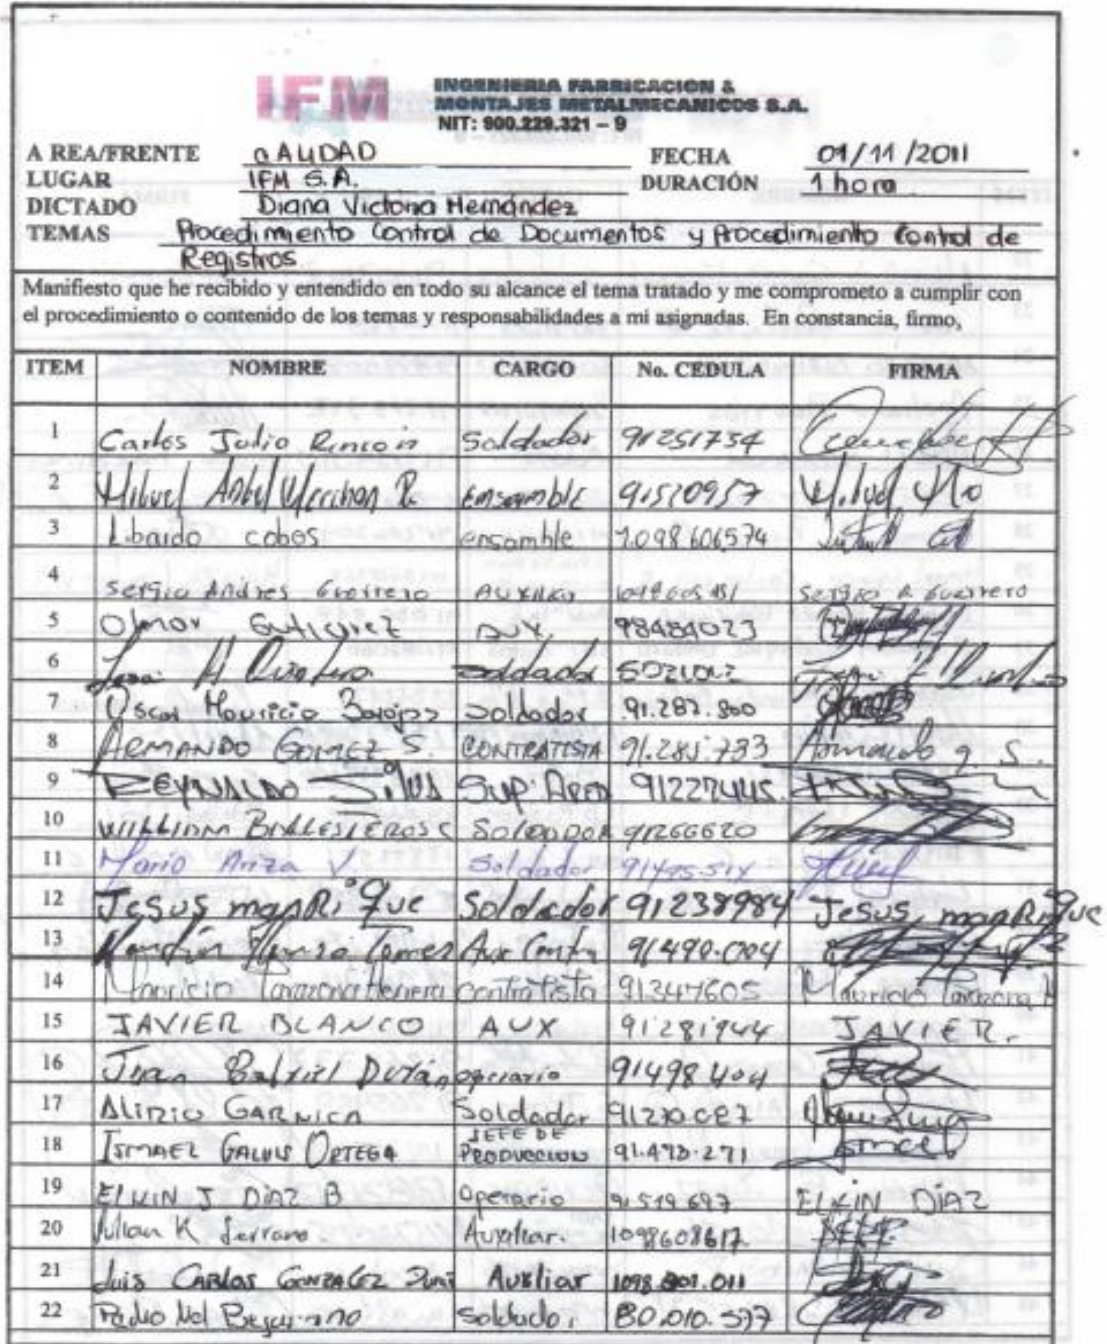 IFM INGENIERIA FABRICACION &
MONTAJES METALMECANICOS S.A.
NIT: 900.229.321 – 9
A REA/FRENTE CALIDAD FECHA 01/11/2011
LUGAR IFM S.A. DURACIÓN 1 hora
DICTADO Diana Victoria Hernández
TEMAS Procedimiento Control de Documentos y Procedimiento Control de
Registros
Manifiesto que he recibido y entendido en todo su alcance el tema tratado y me comprometo a cumplir con
el procedimiento o contenido de los temas y responsabilidades a mi asignadas. En constancia, firmo,
ITEM NOMBRE CARGO No. CEDULA FIRMA
1 Carlos Julio Rincon Soldador 91251754
2 Miguel Angel ensamble 91520957
3 Libardo cobos ensamble 1.098606574
4 Sergio Andres Guerrero Auxiliar Sergio A Guerrero
5 Omar Gutierrez aux 98484023
6 Soldador
7 Oscar Mauricio Soldador 91.287.800
8 ARMANDO GOMEZ S. CONTRATISTA 91.285.733 Armando g. S.
9 REYNALDO Silva Sup Area 91227445
10 WILLIAM BALLESTEROS C Soldador 91266620
11 Mario Ariza V. Soldador
12 Jesus manRique Soldador 91238984 Jesus manRique
13 91490.004
14 Mauricio Carmona Herrera contratista 91347605 Mauricio Carmona H
15 JAVIER BLANCO AUX 91281944 JAVIER.
16 Juan Gabriel Durán operario 91498404
17 Alirio GARNICA Soldador 91270.087
18 ISMAEL GALVIS ORTEGA JEFE DE PRODUCCION 91.473.271 Ismael
19 ELKIN J DIAZ B Operario 91519697 ELKIN DIAZ
20 Julian K Serrano. Auxiliar. 1098608617
21 Luis CARLOS GONZALEZ Auxiliar
22 Pedro Nel Soldador 80.010.597